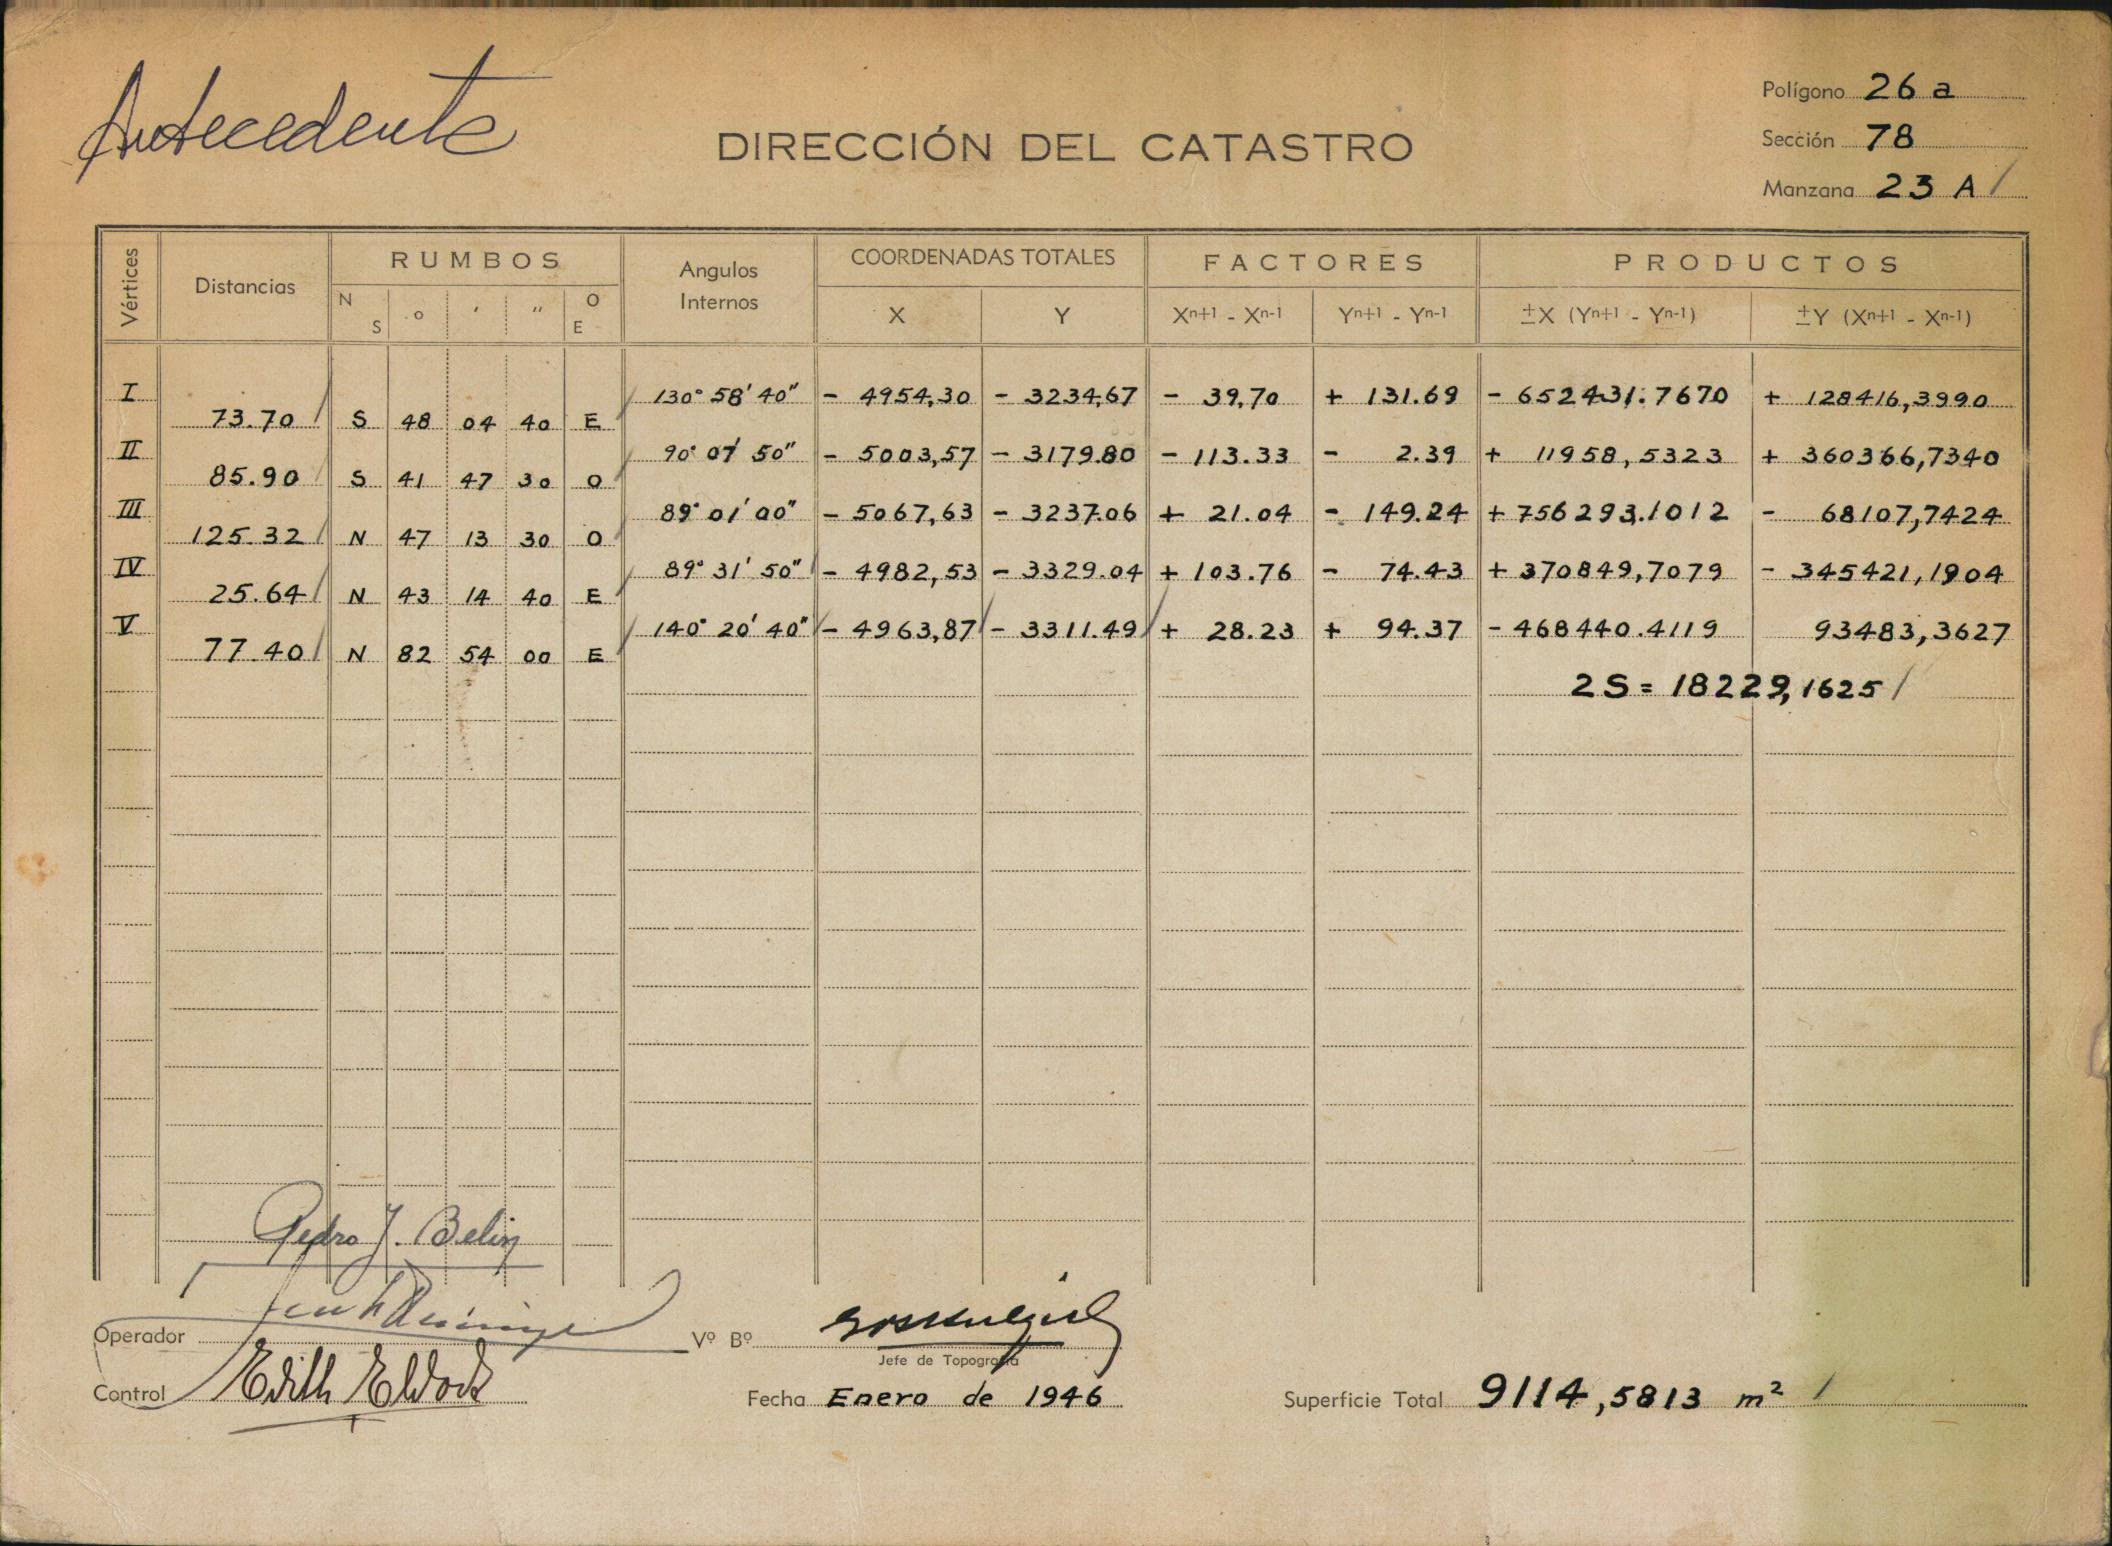 Antecedente
DIRECCIÓN DEL CATASTRO
Polígono 26 a
Sección 78
Manzana 23 A /
Vértices Distancias RUMBOS Angulos Internos COORDENADAS TOTALES FACTORES PRODUCTOS
N S o ' " O E X Y Xn+1 - Xn-1 Yn+1 - Yn-1 ±X (Yn+1 - Yn-1) ±Y (Xn+1 - Xn-1)
I 130° 58' 40" - 4954,30 - 3234,67 - 39,70 + 131.69 - 652431.7670 + 128416,3990
73.70 S 48 04 40 E
II 90° 07' 50" - 5003,57 - 3179.80 - 113.33 - 2.39 + 11958,5323 + 360366,7340
85.90 S 41 47 30 O
III 89° 01' 00" - 5067,63 - 3237.06 + 21.04 - 149.24 + 756293.1012 - 68107,7424
125.32 N 47 13 30 O
IV 89° 31' 50" - 4982,53 - 3329.04 + 103.76 - 74.43 + 370849,7079 - 345421,1904
25.64 N 43 14 40 E
V 140° 20' 40" - 4963,87 - 3311.49 + 28.23 + 94.37 - 468440.4119 93483,3627
77.40 N 82 54 00 E
2S = 18229,1625 /
Pedro J. Belin
Operador
Vº Bº
Jefe de Topografía
Control Edith
Fecha Enero de 1946
Superficie Total 9114,5813 m² /